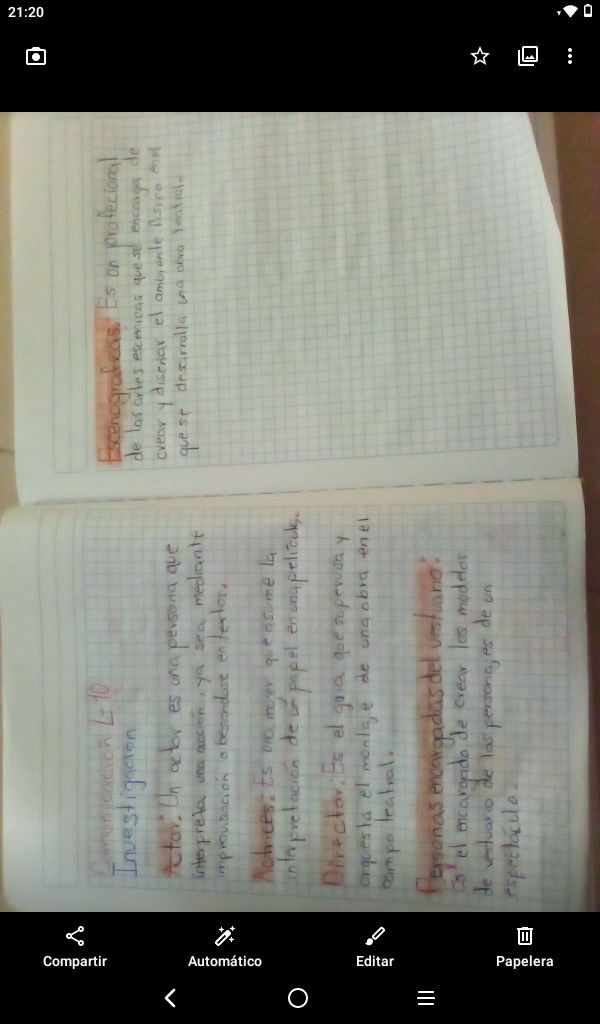 21:20
Comunicación L-10
Investigación
Actor: Un actor es una persona que
interpreta una acción, ya sea mediante
improvisación o basandose en textos.
Actrices. Es una mujer que asume la
interpretación de un papel en una película.
Director. Es el guia que supervisa y
orquesta el montaje de una obra en el
campo teatral.
Personas encargadas del vestuario.
Es el encargado de crear los modelos
de vestuario de los personajes de un
espectáculo.
Escenograficas. Es un profecional
de las artes escenicas que se encarga de
crear y diseñar el ambiente fisico en el
que se desarrolla una obra teatral.
Compartir
Automático
Editar
Papelera